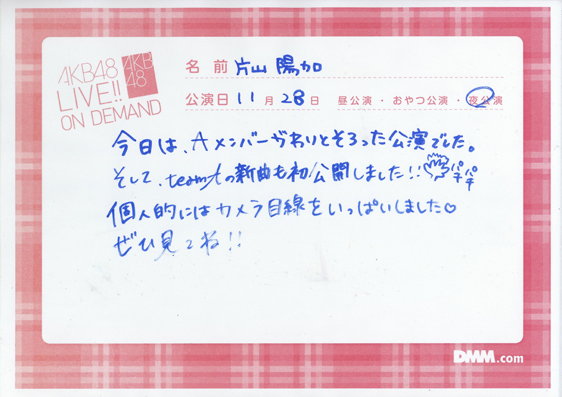 AKB48
LIVE!!
ON DEMAND
AKB
48
名前 片山陽加
公演日 11月28日 昼公演・おやつ公演・夜公演
今日は、Aメンバーがわりとそろった公演でした。
そして、teamAの新曲も初公開しました!! パチパチ
個人的にはカメラ目線をいっぱいしました♡
ぜひ見てね!!
DMM.com